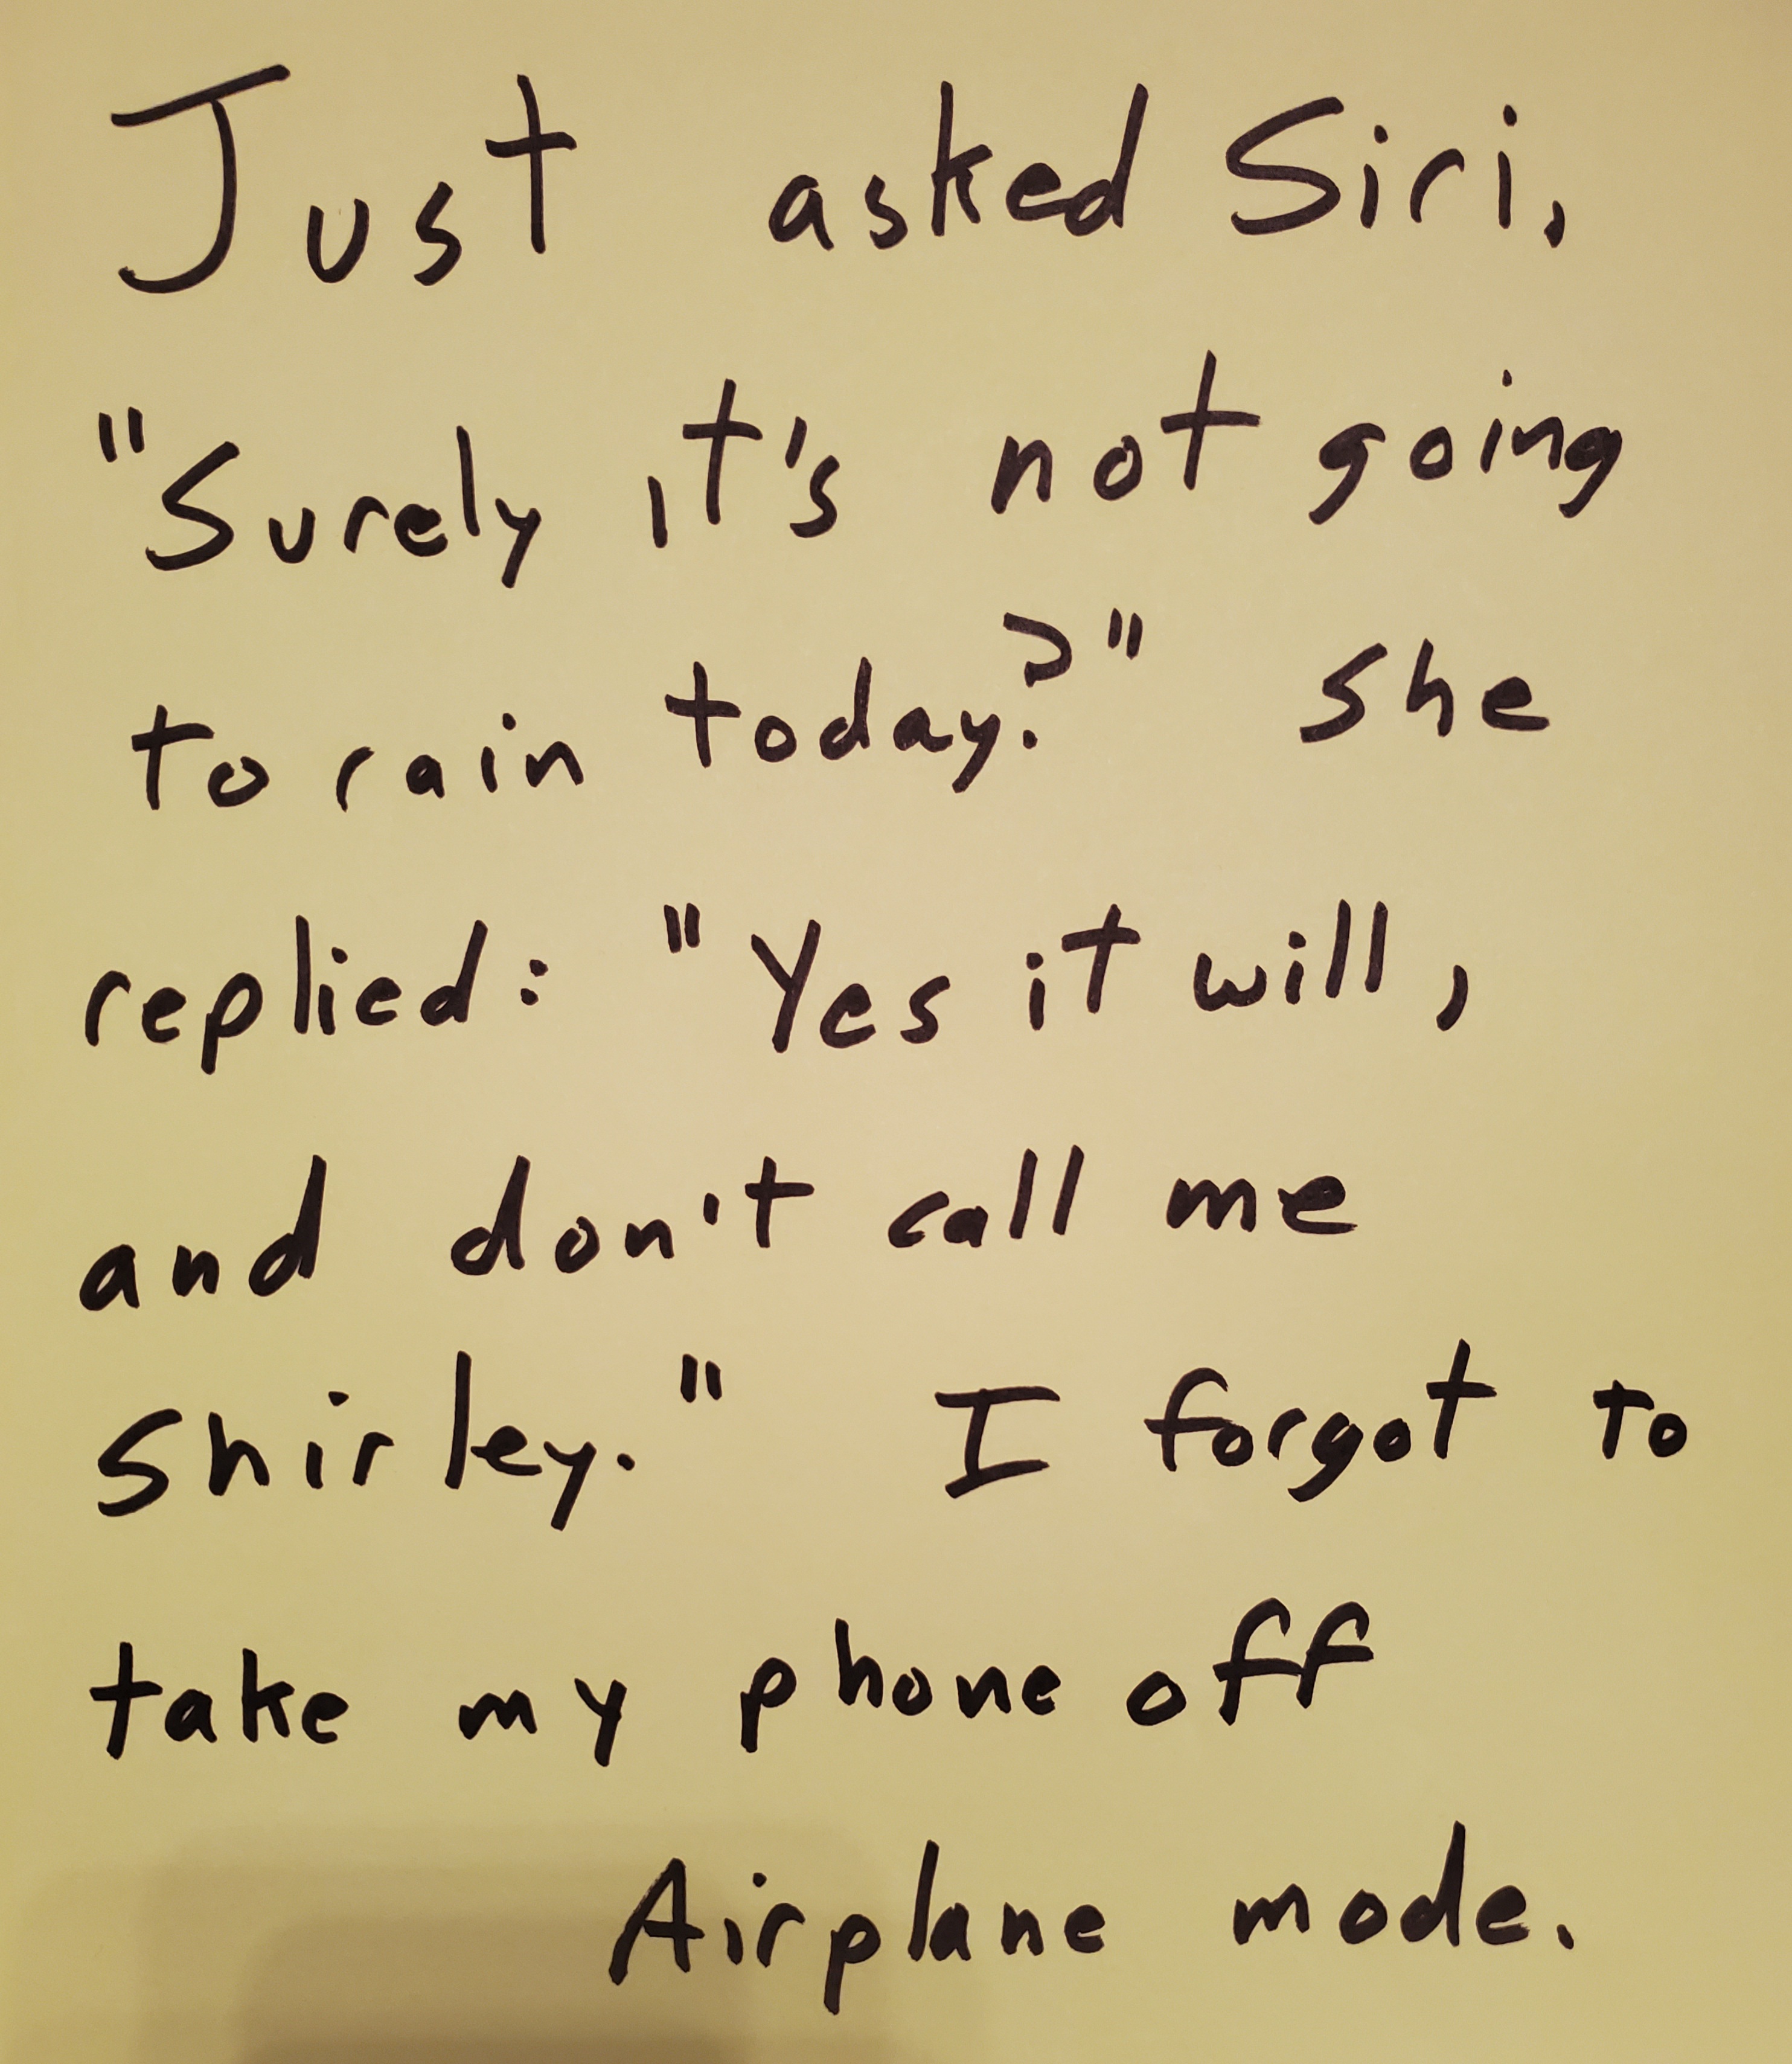 Just asked Siri,
"Surely it's not going
to rain today?" she
replied: "Yes it will,
and don't call me
Shirley." I forgot to
take my phone off
Airplane mode.